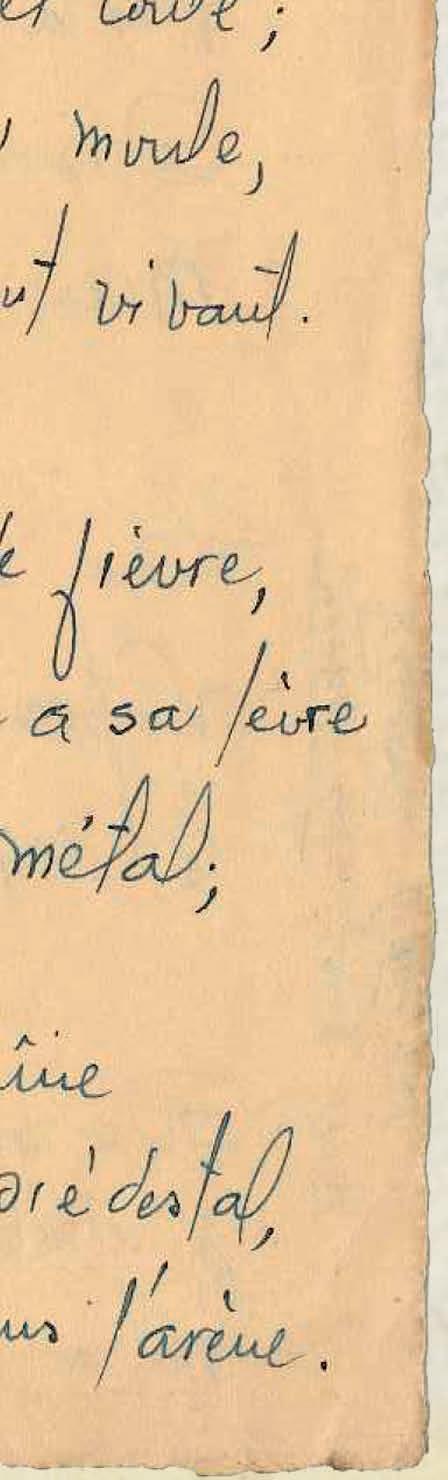 et coule ;
moule,
vivant.
fièvre,
a sa lèvre
métal ;
piédestal,
l'arène.